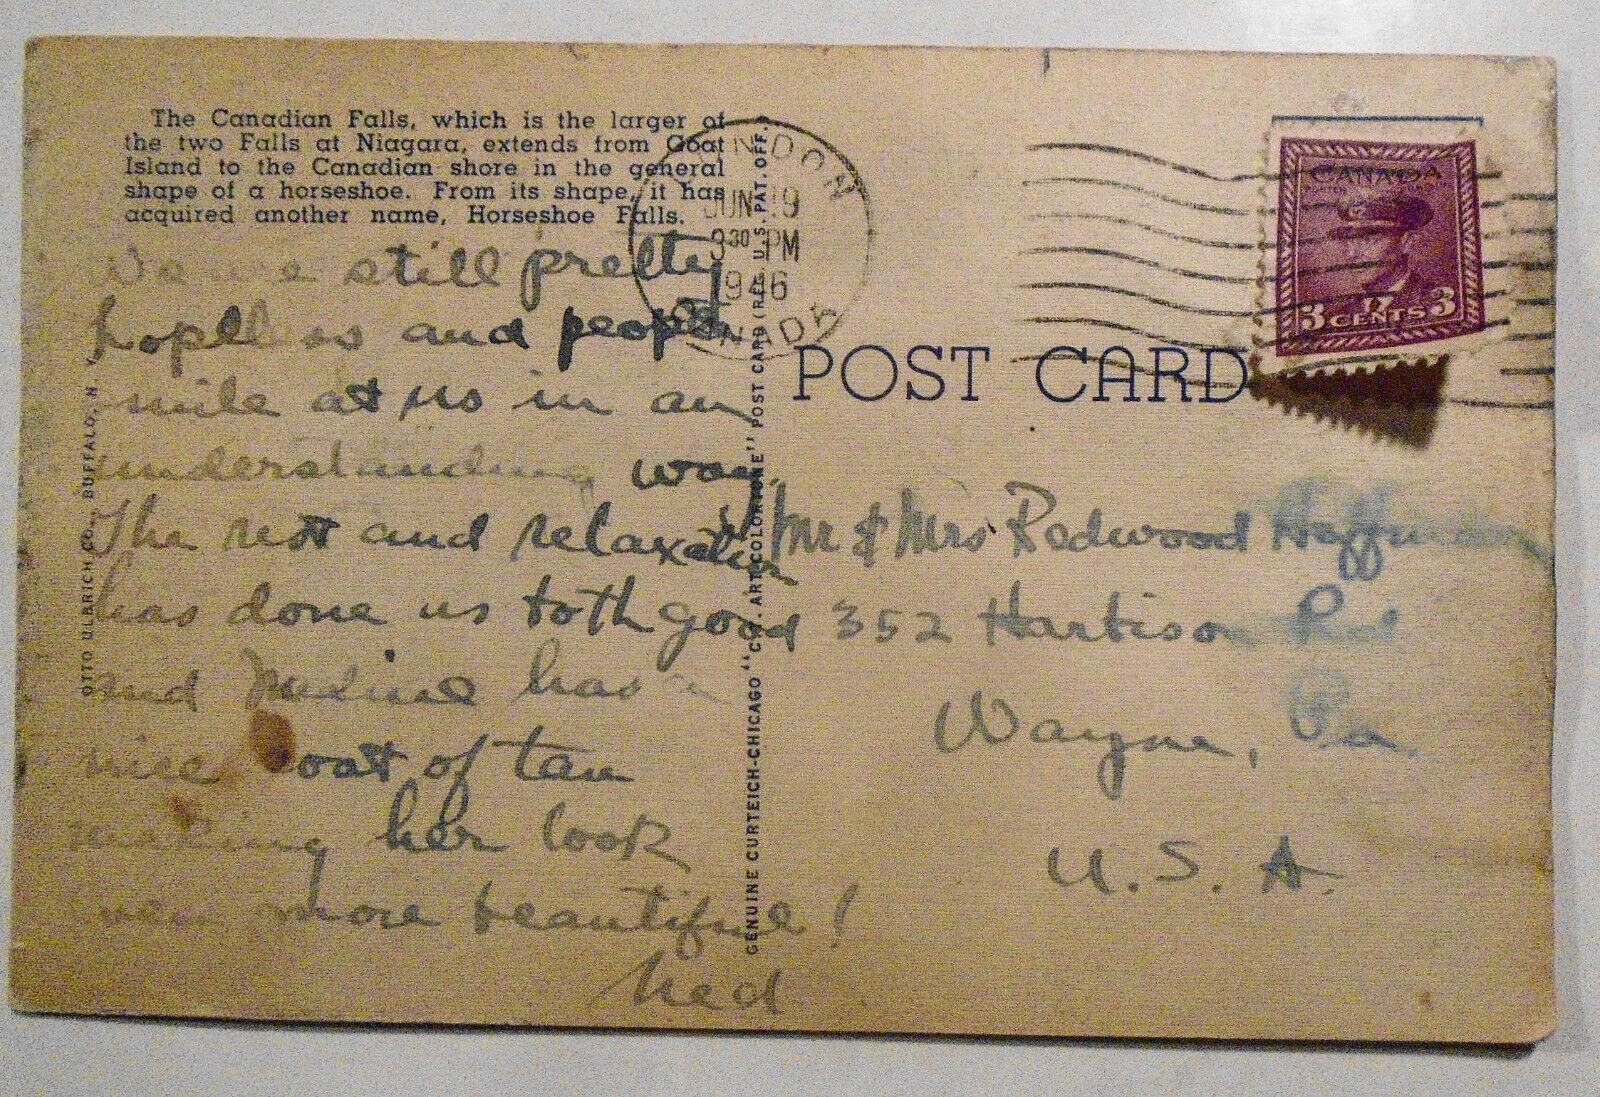 The Canadian Falls, which is the larger of
the two Falls at Niagara, extends from Goat
Island to the Canadian shore in the general
shape of a horseshoe. From its shape, it has
acquired another name, Horseshoe Falls.
We are still pretty
hopeless and people
smile at us in an
understanding way.
The rest and relaxation
has done us both good
and Maxine has a
nice coat of tan
making her look
even more beautiful!
Ned
OTTO ULBRICH CO., BUFFALO, N. Y.
GENUINE CURTEICH-CHICAGO "C.T. ART-COLORTONE" POST CARD (REG. U.S. PAT. OFF.)
JUN 19
3 30 PM
POST CARD
CANADA
3 CENTS 3
Mr & Mrs Redwood
352 Harbison Rd
Wayne, Pa.
U.S.A.